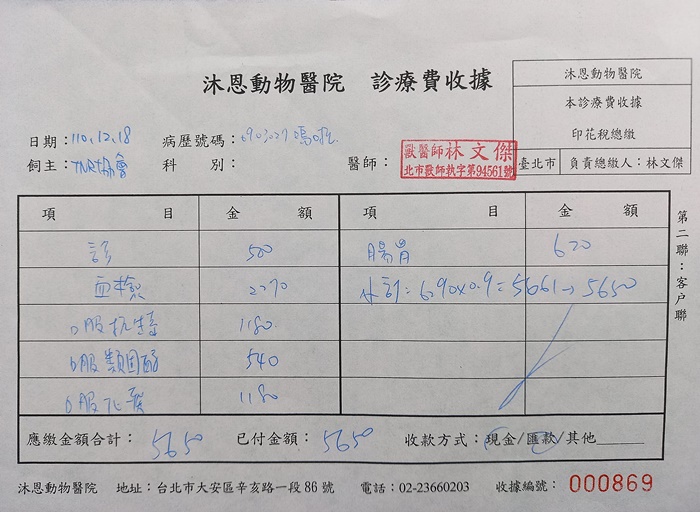 沐恩動物醫院 診療費收據
沐恩動物醫院
本診療費收據
印花稅總繳
臺北市 負責總繳人：林文傑
日期：110.12.18 病歷號碼：
飼主：TNR協會 科別： 醫師： 獸醫師林文傑
北市獸師執字第94561號
項目 金額 項目 金額
診 500 腸胃 620
血檢 2270 6290×0.9=5661→5650
口服抗生素 1180
口服類固醇 540
口服 1180
應繳金額合計：5650 已付金額：5650 收款方式：現金/匯款/其他
第二聯：客戶聯
沐恩動物醫院 地址：台北市大安區辛亥路一段86號 電話：02-23660203 收據編號：000869